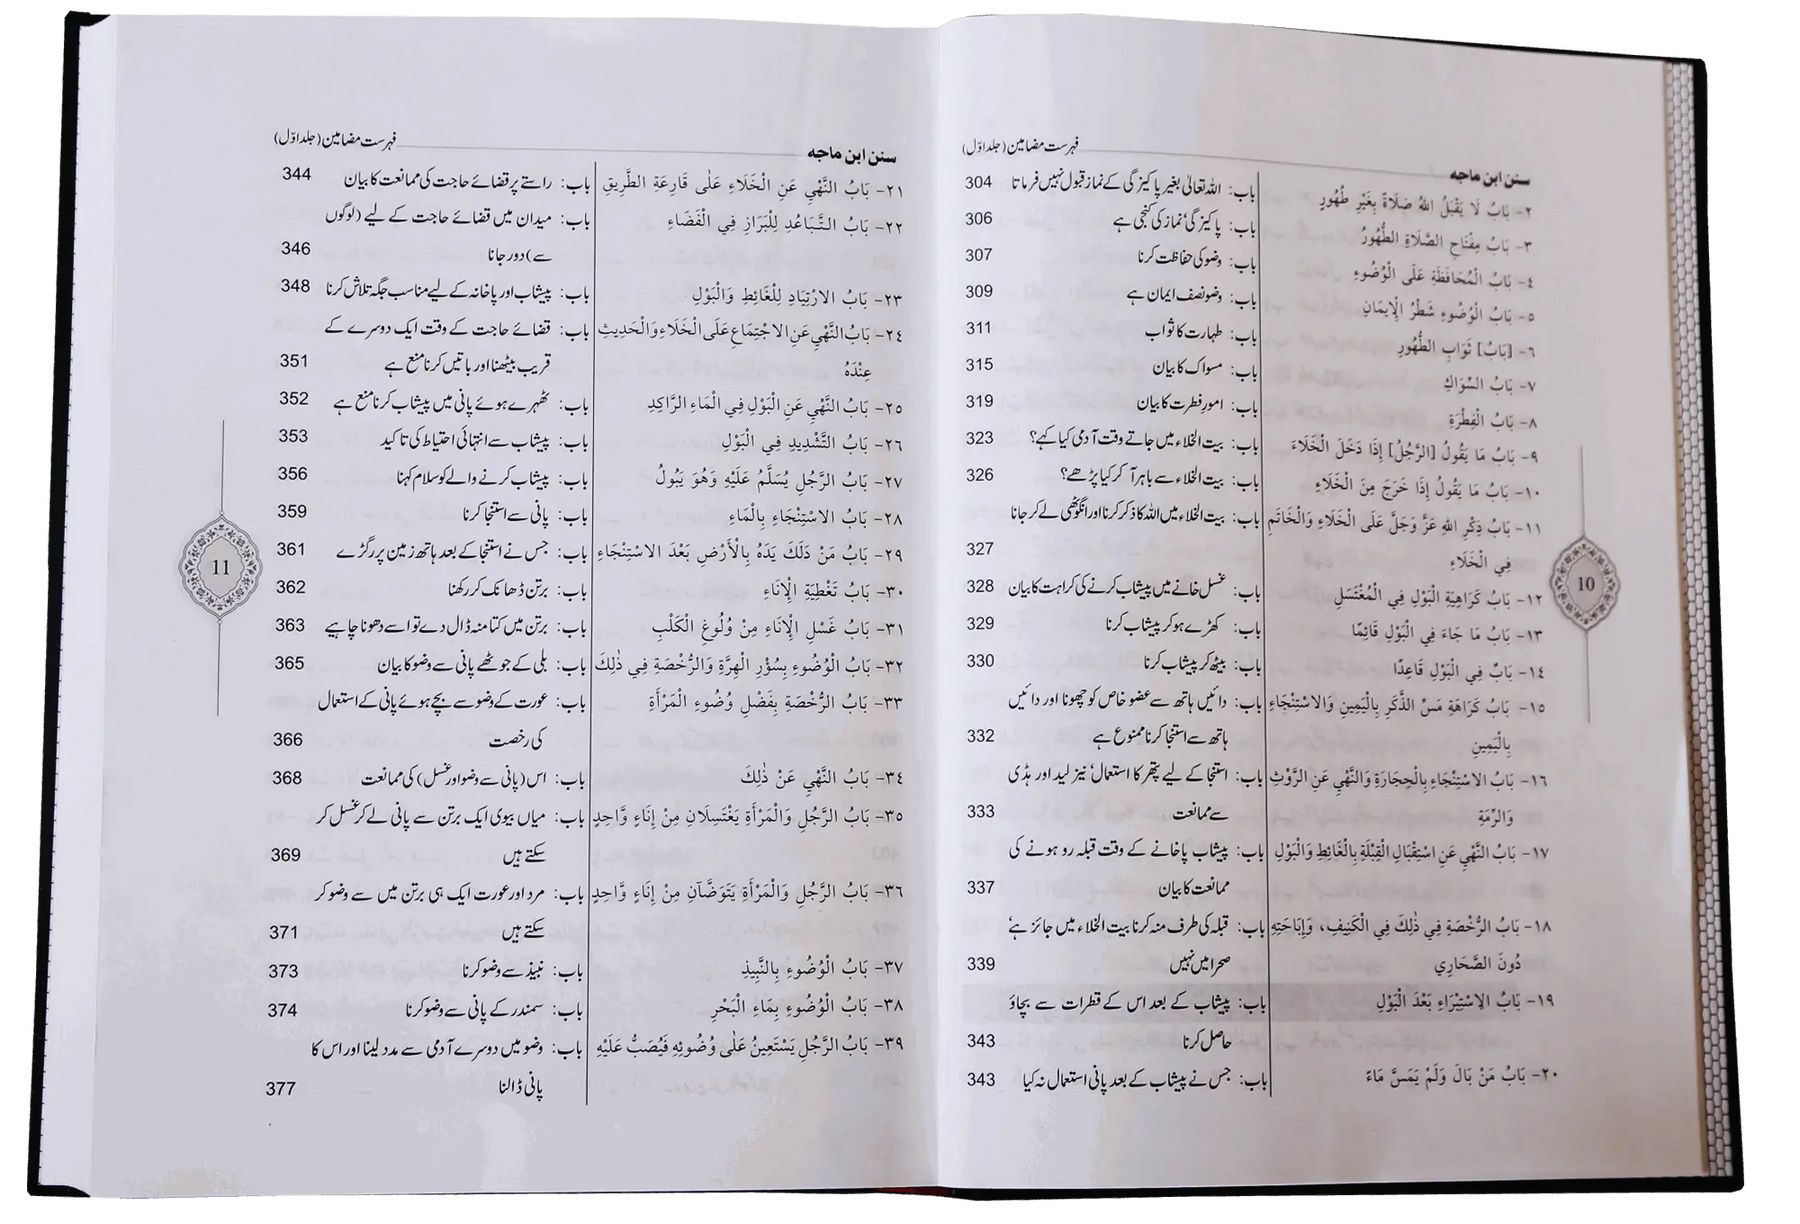 سنن ابن ماجه فہرست مضامین (جلد اوّل)
٢- بَابُ لَا يَقْبَلُ اللهُ صَلَاةً بِغَيْرِ طُهُورٍ باب: اللہ تعالیٰ بغیر پاکیزگی کے نماز قبول نہیں فرماتا 304
٣- بَابُ مِفْتَاحِ الصَّلَاةِ الطُّهُورُ باب: پاکیزگی نماز کی کنجی ہے 306
٤- بَابُ الْمُحَافَظَةِ عَلَى الْوُضُوءِ باب: وضو کی حفاظت کرنا 307
٥- بَابُ الْوُضُوءِ شَطْرُ الْإِيمَانِ باب: وضو نصف ایمان ہے 309
٦- [بَابُ] ثَوَابِ الطُّهُورِ باب: طہارت کا ثواب 311
٧- بَابُ السِّوَاكِ باب: مسواک کا بیان 315
٨- بَابُ الْفِطْرَةِ باب: امور فطرت کا بیان 319
٩- بَابُ مَا يَقُولُ [الرَّجُلُ] إِذَا دَخَلَ الْخَلَاءَ باب: بیت الخلاء میں جاتے وقت آدمی کیا کہے؟ 323
١٠- بَابُ مَا يَقُولُ إِذَا خَرَجَ مِنَ الْخَلَاءِ باب: بیت الخلاء سے باہر آ کر کیا پڑھے؟ 326
١١- بَابُ ذِكْرِ اللهِ عَزَّ وَجَلَّ عَلَى الْخَلَاءِ وَالْخَاتَمِ باب: بیت الخلاء میں اللہ کا ذکر کرنا اور انگوٹھی لے کر جانا
فِي الْخَلَاءِ 327
١٢- بَابُ كَرَاهِيَةِ الْبَوْلِ فِي الْمُغْتَسَلِ باب: غسل خانے میں پیشاب کرنے کی کراہت کا بیان 328
١٣- بَابُ مَا جَاءَ فِي الْبَوْلِ قَائِمًا باب: کھڑے ہو کر پیشاب کرنا 329
١٤- بَابٌ فِي الْبَوْلِ قَاعِدًا باب: بیٹھ کر پیشاب کرنا 330
١٥- بَابُ كَرَاهَةِ مَسِّ الذَّكَرِ بِالْيَمِينِ وَالِاسْتِنْجَاءِ باب: دائیں ہاتھ سے عضو خاص کو چھونا اور دائیں
بِالْيَمِينِ ہاتھ سے استنجا کرنا ممنوع ہے 332
١٦- بَابُ الِاسْتِنْجَاءِ بِالْحِجَارَةِ وَالنَّهْيِ عَنِ الرَّوْثِ باب: استنجا کے لیے پتھر کا استعمال نیز لید اور ہڈی
وَالرِّمَّةِ سے ممانعت 333
١٧- بَابُ النَّهْيِ عَنِ اسْتِقْبَالِ الْقِبْلَةِ بِالْغَائِطِ وَالْبَوْلِ باب: پیشاب پاخانے کے وقت قبلہ رو ہونے کی
ممانعت کا بیان 337
١٨- بَابُ الرُّخْصَةِ فِي ذَلِكَ فِي الْكَنِيفِ، وَإِبَاحَتِهِ باب: قبلہ کی طرف منہ کرنا بیت الخلاء میں جائز ہے،
دُونَ الصَّحَارِي صحرا میں نہیں 339
١٩- بَابُ الِاسْتِبْرَاءِ بَعْدَ الْبَوْلِ باب: پیشاب کے بعد اس کے قطرات سے بچاؤ
حاصل کرنا 343
٢٠- بَابُ مَنْ بَالَ وَلَمْ يَمَسَّ مَاءً باب: جس نے پیشاب کے بعد پانی استعمال نہ کیا 343
10
سنن ابن ماجه فہرست مضامین (جلد اوّل)
٢١- بَابُ النَّهْيِ عَنِ الْخَلَاءِ عَلَى قَارِعَةِ الطَّرِيقِ باب: راستے پر قضائے حاجت کی ممانعت کا بیان 344
٢٢- بَابُ التَّبَاعُدِ لِلْبَرَازِ فِي الْفَضَاءِ باب: میدان میں قضائے حاجت کے لیے (لوگوں
سے) دور جانا 346
٢٣- بَابُ الِارْتِيَادِ لِلْغَائِطِ وَالْبَوْلِ باب: پیشاب اور پاخانہ کے لیے مناسب جگہ تلاش کرنا 348
٢٤- بَابُ النَّهْيِ عَنِ الِاجْتِمَاعِ عَلَى الْخَلَاءِ وَالْحَدِيثِ باب: قضائے حاجت کے وقت ایک دوسرے کے
عِنْدَهُ قریب بیٹھنا اور باتیں کرنا منع ہے 351
٢٥- بَابُ النَّهْيِ عَنِ الْبَوْلِ فِي الْمَاءِ الرَّاكِدِ باب: ٹھہرے ہوئے پانی میں پیشاب کرنا منع ہے 352
٢٦- بَابُ التَّشْدِيدِ فِي الْبَوْلِ باب: پیشاب سے انتہائی احتیاط کی تاکید 353
٢٧- بَابُ الرَّجُلِ يُسَلَّمُ عَلَيْهِ وَهُوَ يَبُولُ باب: پیشاب کرنے والے کو سلام کہنا 356
٢٨- بَابُ الِاسْتِنْجَاءِ بِالْمَاءِ باب: پانی سے استنجا کرنا 359
٢٩- بَابُ مَنْ دَلَكَ يَدَهُ بِالْأَرْضِ بَعْدَ الِاسْتِنْجَاءِ باب: جس نے استنجا کے بعد ہاتھ زمین پر رگڑے 361
٣٠- بَابُ تَغْطِيَةِ الْإِنَاءِ باب: برتن ڈھانک کر رکھنا 362
٣١- بَابُ غَسْلِ الْإِنَاءِ مِنْ وُلُوغِ الْكَلْبِ باب: برتن میں کتا منہ ڈال دے تو اسے دھونا چاہیے 363
٣٢- بَابُ الْوُضُوءِ بِسُؤْرِ الْهِرَّةِ وَالرُّخْصَةِ فِي ذَلِكَ باب: بلی کے جوٹھے پانی سے وضو کا بیان 365
٣٣- بَابُ الرُّخْصَةِ بِفَضْلِ وُضُوءِ الْمَرْأَةِ باب: عورت کے وضو سے بچے ہوئے پانی کے استعمال
کی رخصت 366
٣٤- بَابُ النَّهْيِ عَنْ ذَلِكَ باب: اس (پانی سے وضو اور غسل) کی ممانعت 368
٣٥- بَابُ الرَّجُلِ وَالْمَرْأَةِ يَغْتَسِلَانِ مِنْ إِنَاءٍ وَّاحِدٍ باب: میاں بیوی ایک برتن سے پانی لے کر غسل کر
سکتے ہیں 369
٣٦- بَابُ الرَّجُلِ وَالْمَرْأَةِ يَتَوَضَّآنِ مِنْ إِنَاءٍ وَّاحِدٍ باب: مرد اور عورت ایک ہی برتن میں سے وضو کر
سکتے ہیں 371
٣٧- بَابُ الْوُضُوءِ بِالنَّبِيذِ باب: نبیذ سے وضو کرنا 373
٣٨- بَابُ الْوُضُوءِ بِمَاءِ الْبَحْرِ باب: سمندر کے پانی سے وضو کرنا 374
٣٩- بَابُ الرَّجُلِ يَسْتَعِينُ عَلَى وُضُوئِهِ فَيُصَبُّ عَلَيْهِ باب: وضو میں دوسرے آدمی سے مدد لینا اور اس کا
پانی ڈالنا 377
11